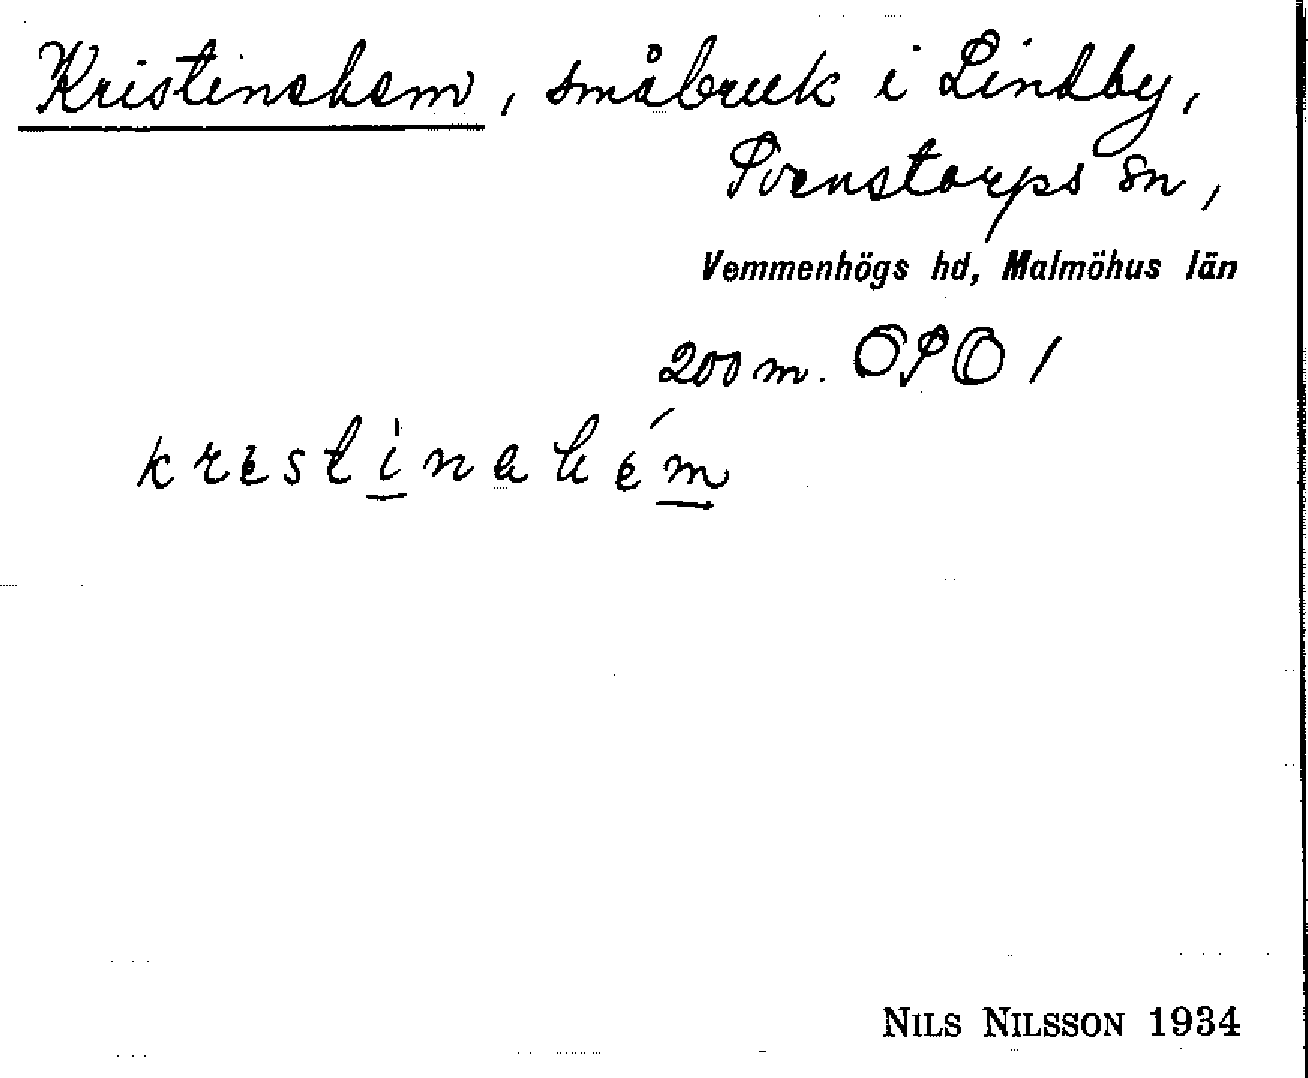 Kristinehem, småbruk i Lindby,
Svenstorps sn,
Vemmenhögs hd, Malmöhus län
200 m. OSO 1
krestinahém
NILS NILSSON 1934